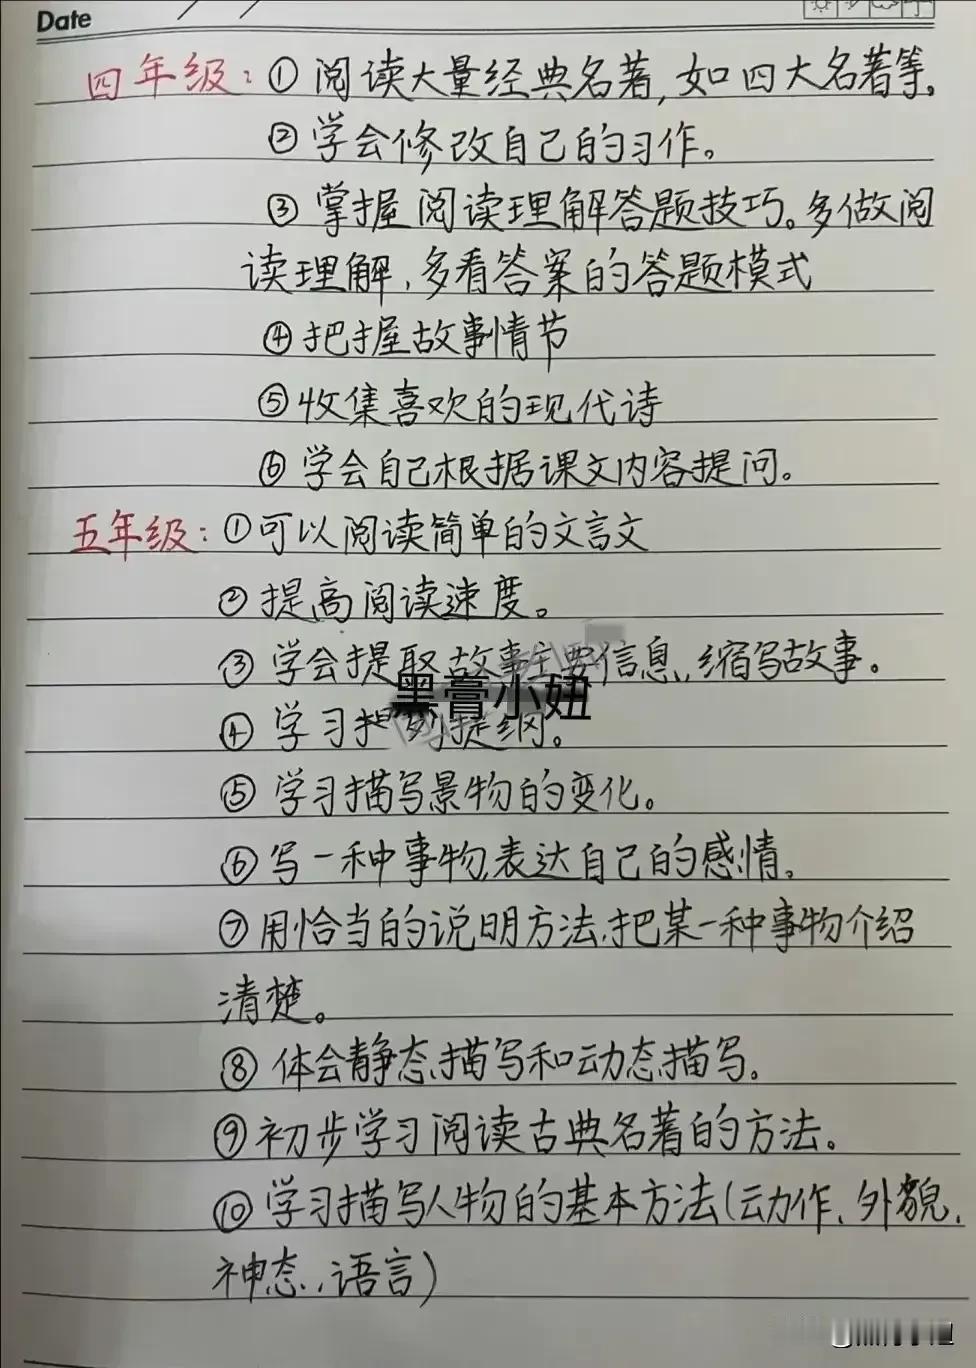 Date
四年级：①阅读大量经典名著，如四大名著等，
②学会修改自己的习作。
③掌握阅读理解答题技巧。多做阅
读理解，多看答案的答题模式
④把握故事情节
⑤收集喜欢的现代诗
⑥学会自己根据课文内容提问。
五年级：①可以阅读简单的文言文
②提高阅读速度。
③学会提取故事主要信息，缩写故事。
黑膏小妞
④学习提列提纲。
⑤学习描写景物的变化。
⑥写一种事物，表达自己的感情。
⑦用恰当的说明方法，把某一种事物介绍
清楚。
⑧体会静态描写和动态描写。
⑨初步学习阅读古典名著的方法。
⑩学习描写人物的基本方法（动作、外貌、
神态、语言）